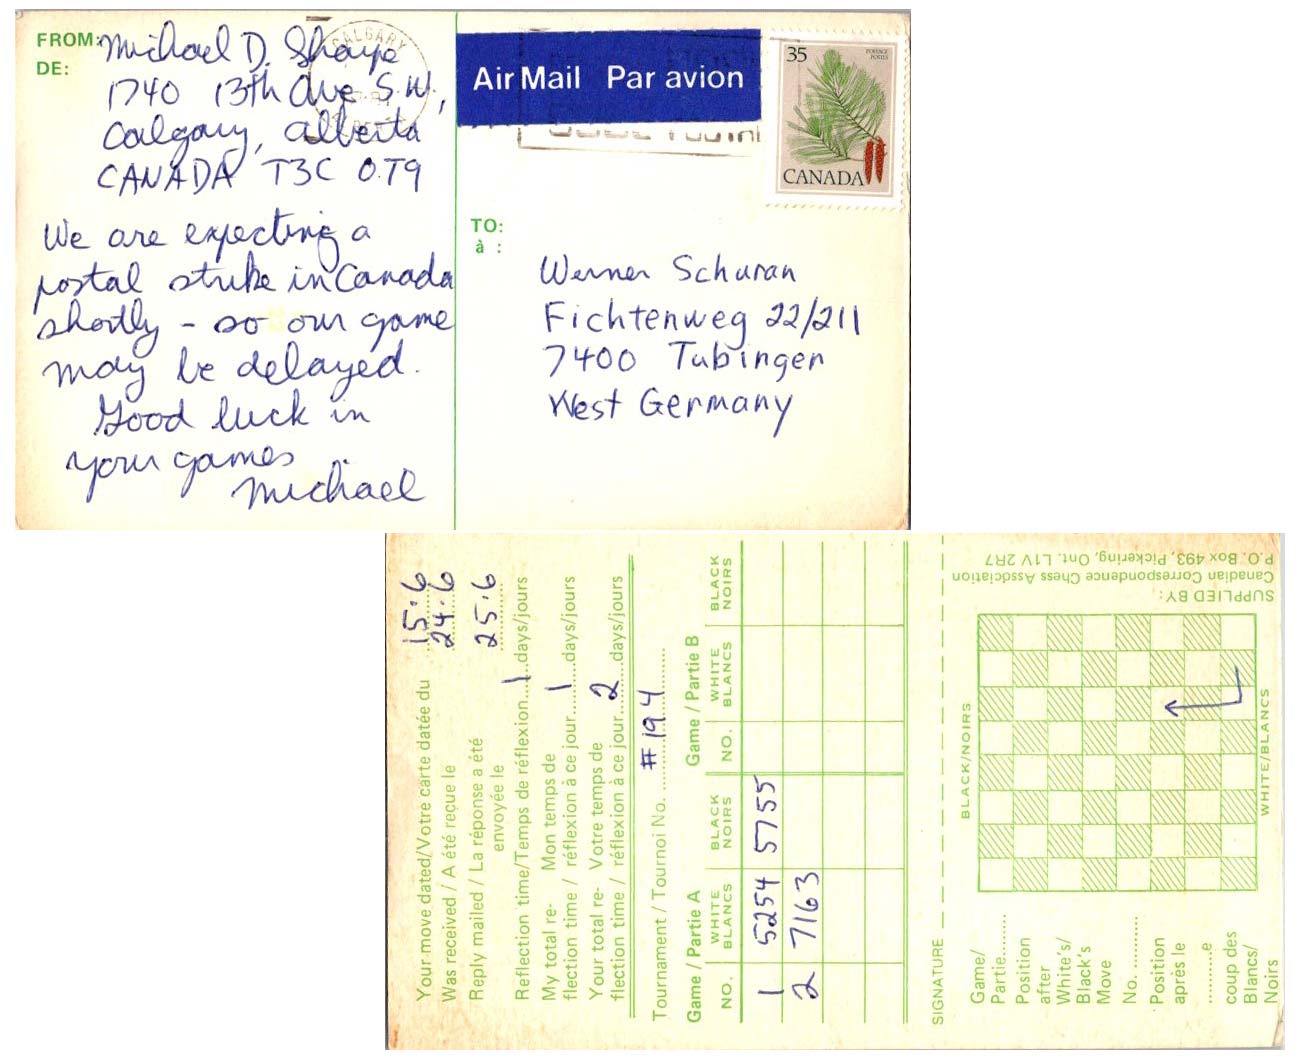 FROM: Michael D. Sharpe
DE: 1740 13th Ave S.W.,
Calgary, Alberta
CANADA T3C 0T9
We are expecting a
postal strike in Canada
shortly - so our game
may be delayed.
Good luck in
your games
Michael
CALGARY
Air Mail Par avion
35
POSTAGE
POSTES
CANADA
TO:
à :
Werner Schuran
Fichtenweg 22/211
7400 Tubingen
West Germany
Your move dated/Votre carte datée du 15.6
Was received / A été reçue le 24.6
Reply mailed / La réponse a été
envoyée le 25.6
Reflection time/Temps de réflexion 1 days/jours
My total re- Mon temps de
flection time / réflexion à ce jour 1 days/jours
Your total re- Votre temps de
flection time / réflexion à ce jour 2 days/jours
Tournament / Tournoi No. #194
Game / Partie A Game / Partie B
NO. WHITE BLACK NO. WHITE BLACK
BLANCS NOIRS BLANCS NOIRS
1 5254 5755
2 7163
SIGNATURE
Game/
Partie
Position
after
White's/
Black's
Move
No.
Position
après le
e
coup des
Blancs/
Noirs
BLACK/NOIRS
WHITE/BLANCS
SUPPLIED BY:
Canadian Correspondence Chess Association
P.O. Box 493, Pickering, Ont. L1V 2R7